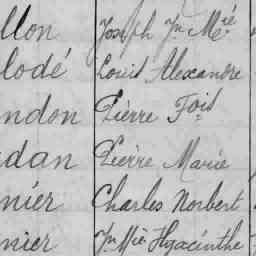 llon Joseph Jn Mie
lodé Louis Alexandre
ndon Pierre Fois
dan Pierre Marie
nier Charles Norbert
nier Jn Mie Hyacinthe